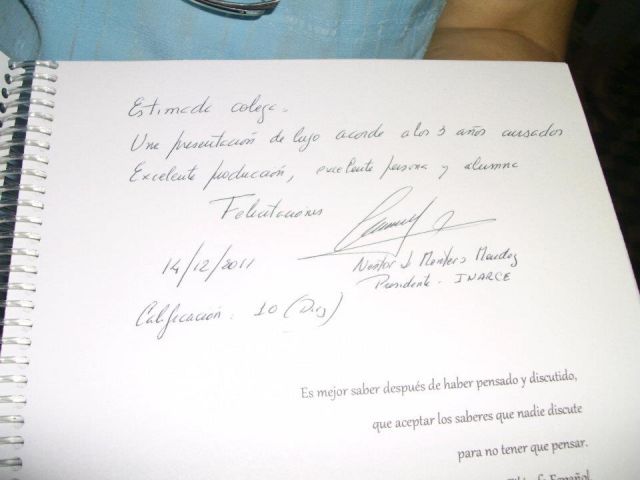 Estimada colega.
Una presentación de lujo acorde a los 3 años cursados
Excelente producción, excelente persona y alumna
Felicitaciones
14/12/2011
Nestor J. Montero Mendez
Presidente - INARCE
Calificación: 10 (Diez)
Es mejor saber después de haber pensado y discutido,
que aceptar los saberes que nadie discute
para no tener que pensar.
de Español